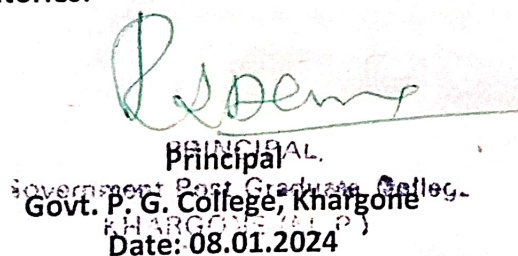 PRINCIPAL,
Principal
Government Post Graduate College
Govt. P. G. College, Khargone
KHARGONE (M.P.)
Date: 08.01.2024